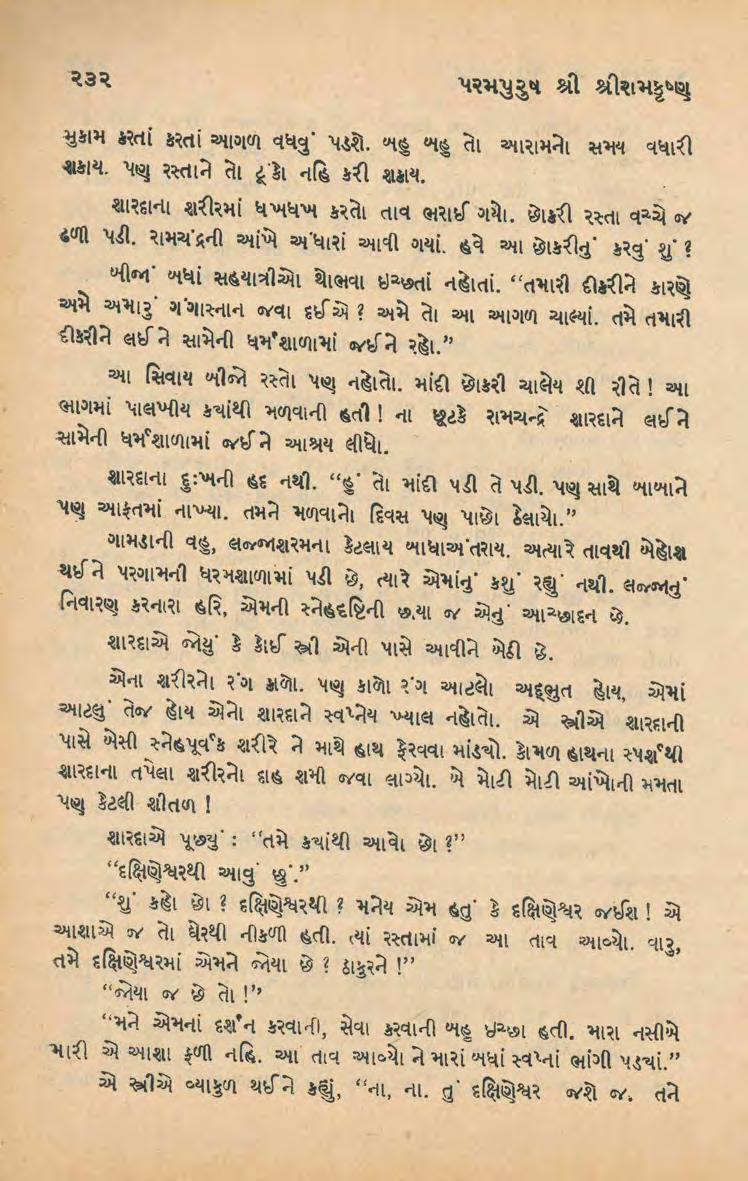 ૨૩૨ પરમપુરુષ શ્રી શ્રીરામકૃષ્ણ
મુકામ કરતાં કરતાં આગળ વધવું પડશે. બહુ બહુ તો આરામનો સમય વધારી
શકાય. પણ રસ્તાને તો ટૂંકો નહિ કરી શકાય.
શારદાના શરીરમાં ધખધખ કરતો તાવ ભરાઈ ગયો. છોકરી રસ્તા વચ્ચે જ
ઢળી પડી. રામચંદ્રની આંખે અંધારાં આવી ગયાં. હવે આ છોકરીનું કરવું શું ?
બીજાં બધાં સહયાત્રીઓ થોભવા ઇચ્છતાં નહોતાં. “તમારી દીકરીને કારણે
અમે અમારું ગંગાસ્નાન જવા દઈએ ? અમે તો આ આગળ ચાલ્યાં. તમે તમારી
દીકરીને લઈને સામેની ધર્મશાળામાં જઈને રહો.”
આ સિવાય બીજો રસ્તો પણ નહોતો. માંદી છોકરી ચાલેય શી રીતે ! આ
ભાગમાં પાલખીય કયાંથી મળવાની હતી ! ના છૂટકે રામચન્દ્રે શારદાને લઈને
સામેની ધર્મશાળામાં જઈને આશ્રય લીધો.
શારદાના દુઃખની હદ નથી. “હું તો માંદી પડી તે પડી. પણ સાથે બાબાને
પણ આફતમાં નાખ્યા. તમને મળવાનો દિવસ પણ પાછો ઠેલાયો.”
ગામડાની વહુ, લજ્જાશરમના કેટલાય બાધાઅંતરાય. અત્યારે તાવથી બેહોશ
થઈને પરગામની ધરમશાળામાં પડી છે, ત્યારે એમાંનું કશું રહ્યું નથી. લજ્જાનું
નિવારણ કરનારા હરિ, એમની સ્નેહદૃષ્ટિની છાયા જ એનું આચ્છાદન છે.
શારદાએ જોયું કે કોઈ સ્ત્રી એની પાસે આવીને બેઠી છે.
એના શરીરનો રંગ કાળો. પણ કાળો રંગ આટલો અદ્ભુત હોય, એમાં
આટલું તેજ હોય એનો શારદાને સ્વપ્નેય ખ્યાલ નહોતો. એ સ્ત્રીએ શારદાની
પાસે બેસી સ્નેહપૂર્વક શરીરે ને માથે હાથ ફેરવવા માંડયો. કોમળ હાથના સ્પર્શથી
શારદાના તપેલા શરીરનો દાહ શમી જવા લાગ્યો. બે મોટી મોટી આંખોની મમતા
પણ કેટલી શીતળ !
શારદાએ પૂછયું : “તમે કયાંથી આવો છો ?”
“દક્ષિણેશ્વરથી આવું છું.”
“શું કહો છો ? દક્ષિણેશ્વરથી ? મનેય એમ હતું કે દક્ષિણેશ્વર જઈશ ! એ
આશાએ જ તો ઘેરથી નીકળી હતી. ત્યાં રસ્તામાં જ આ તાવ આવ્યો. વારુ,
તમે દક્ષિણેશ્વરમાં એમને જોયા છે ? ઠાકુરને !”
“જોયા જ છે તો !”
“મને એમનાં દર્શન કરવાની, સેવા કરવાની બહુ ઇચ્છા હતી. મારા નસીબે
મારી એ આશા ફળી નહિ. આ તાવ આવ્યો ને મારાં બધાં સ્વપ્નાં ભાંગી પડયાં.”
એ સ્ત્રીએ વ્યાકુળ થઈને કહ્યું, “ના, ના. તું દક્ષિણેશ્વર જશે જ. તને